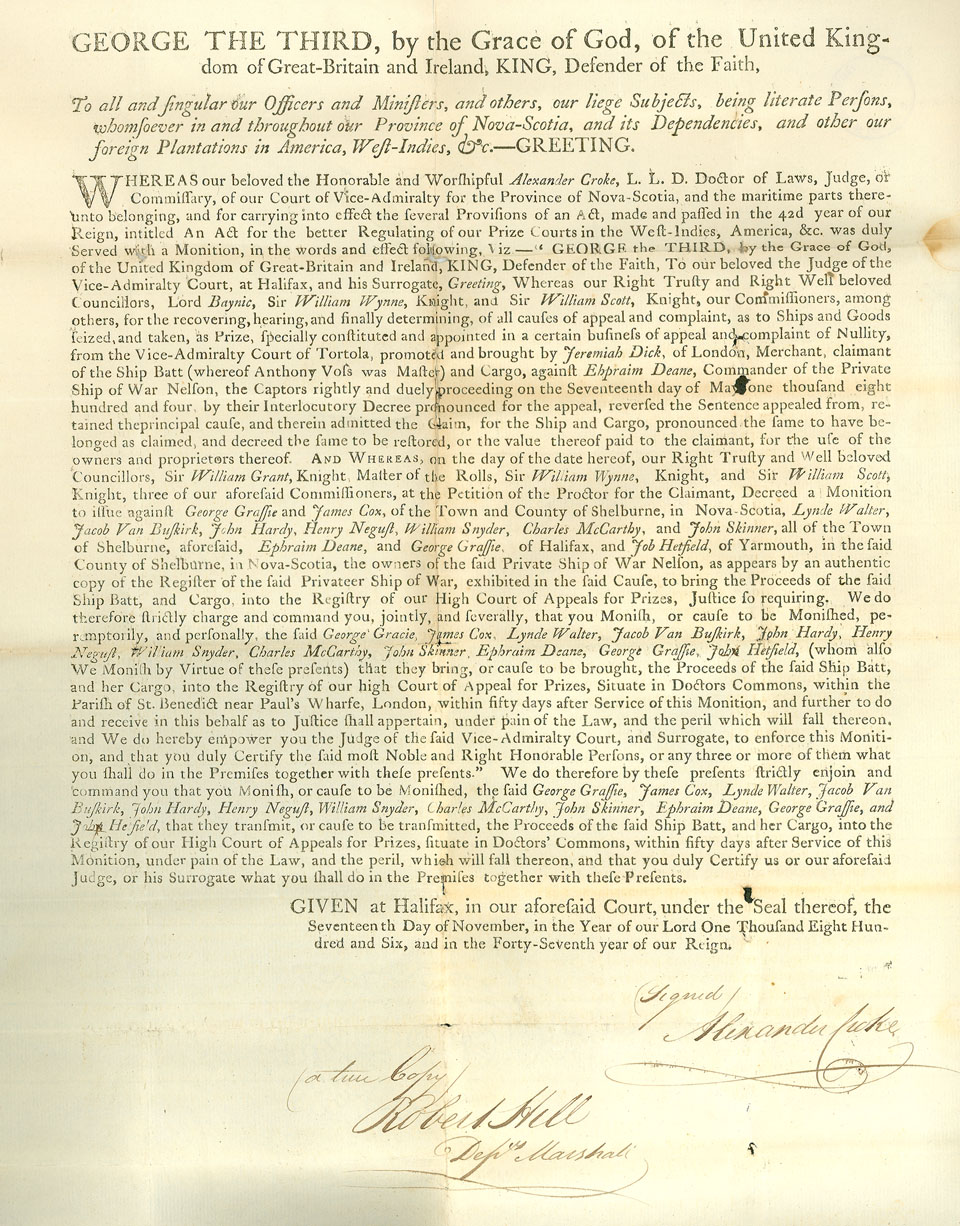 GEORGE THE THIRD, by the Grace of God, of the United King-
dom of Great-Britain and Ireland, KING, Defender of the Faith,
To all and ſingular our Officers and Miniſters, and others, our liege Subjects, being literate Perſons,
whomſoever in and throughout our Province of Nova-Scotia, and its Dependencies, and other our
foreign Plantations in America, Weſt-Indies, &c.—GREETING.
WHEREAS our beloved the Honorable and Worſhipful Alexander Croke, L. L. D. Doctor of Laws, Judge, or
Commiſſary, of our Court of Vice-Admiralty for the Province of Nova-Scotia, and the maritime parts there-
unto belonging, and for carrying into effect the ſeveral Proviſions of an Act, made and paſſed in the 42d year of our
Reign, intitled An Act for the better Regulating of our Prize Courts in the Weſt-Indies, America, &c. was duly
Served with a Monition, in the words and effect following, Viz—“ GEORGE the THIRD, by the Grace of God,
of the United Kingdom of Great-Britain and Ireland, KING, Defender of the Faith, To our beloved the Judge of the
Vice-Admiralty Court, at Halifax, and his Surrogate, Greeting, Whereas our Right Truſty and Right Well beloved
Councillors, Lord Baynic, Sir William Wynne, Knight, and Sir William Scott, Knight, our Commiſſioners, among
others, for the recovering, hearing, and finally determining, of all cauſes of appeal and complaint, as to Ships and Goods
ſeized, and taken, as Prize, ſpecially conſtituted and appointed in a certain buſineſs of appeal and complaint of Nullity,
from the Vice-Admiralty Court of Tortola, promoted and brought by Jeremiah Dick, of London, Merchant, claimant
of the Ship Batt (whereof Anthony Voſs was Maſter) and Cargo, againſt Ehpraim Deane, Commander of the Private
Ship of War Nelſon, the Captors rightly and duely proceeding on the Seventeenth day of May one thouſand eight
hundred and four, by their Interlocutory Decree pronounced for the appeal, reverſed the Sentence appealed from, re-
tained theprincipal cauſe, and therein admitted the Claim, for the Ship and Cargo, pronounced the ſame to have be-
longed as claimed, and decreed the ſame to be reſtored, or the value thereof paid to the claimant, for the uſe of the
owners and proprietors thereof. AND WHEREAS, on the day of the date hereof, our Right Truſty and Well beloved
Councillors, Sir William Grant, Knight, Maſter of the Rolls, Sir William Wynne, Knight, and Sir William Scott,
Knight, three of our aforeſaid Commiſſioners, at the Petition of the Proctor for the Claimant, Decreed a Monition
to iſſue againſt George Graſſie and James Cox, of the Town and County of Shelburne, in Nova-Scotia, Lynde Walter,
Jacob Van Buſkirk, John Hardy, Henry Neguſt, William Snyder, Charles McCarthy, and John Skinner, all of the Town
of Shelburne, aforeſaid, Ephraim Deane, and George Graſſie, of Halifax, and Job Hetfield, of Yarmouth, in the ſaid
County of Shelburne, in Nova-Scotia, the owners of the ſaid Private Ship of War Nelſon, as appears by an authentic
copy of the Regiſter of the ſaid Privateer Ship of War, exhibited in the ſaid Cauſe, to bring the Proceeds of the ſaid
Ship Batt, and Cargo, into the Regiſtry of our High Court of Appeals for Prizes, Juſtice ſo requiring. We do
therefore ſtrictly charge and command you, jointly, and ſeverally, that you Moniſh, or cauſe to be Moniſhed, pe-
remptorily, and perſonally, the ſaid George Gracie, James Cox, Lynde Walter, Jacob Van Buſkirk, John Hardy, Henry
Neguſt, William Snyder, Charles McCarthy, John Skinner, Ephraim Deane, George Graſſie, Hetfield, (whom alſo
We Moniſh by Virtue of theſe preſents) that they bring, or cauſe to be brought, the Proceeds of the ſaid Ship Batt,
and her Cargo, into the Regiſtry of our high Court of Appeal for Prizes, Situate in Doctors Commons, within the
Pariſh of St. Benedict near Paul's Wharfe, London, within fifty days after Service of this Monition, and further to do
and receive in this behalf as to Juſtice ſhall appertain, under pain of the Law, and the peril which will fall thereon,
and We do hereby empower you the Judge of the ſaid Vice-Admiralty Court, and Surrogate, to enforce this Moniti-
on, and that you duly Certify the ſaid moſt Noble and Right Honorable Perſons, or any three or more of them what
you ſhall do in the Premiſes together with theſe preſents.” We do therefore by theſe preſents ſtrictly enjoin and
command you that you Moniſh, or cauſe to be Moniſhed, the ſaid George Graſſie, James Cox, Lynde Walter, Jacob Van
Buſkirk, John Hardy, Henry Neguſt, William Snyder, Charles McCarthy, John Skinner, Ephraim Deane, George Graſſie, and
Hetfield, that they tranſmit, or cauſe to be tranſmitted, the Proceeds of the ſaid Ship Batt, and her Cargo, into the
Regiſtry of our High Court of Appeals for Prizes, ſituate in Doctors' Commons, within fifty days after Service of this
Monition, under pain of the Law, and the peril, which will fall thereon, and that you duly Certify us or our aforeſaid
Judge, or his Surrogate what you ſhall do in the Premiſes together with theſe Preſents.
GIVEN at Halifax, in our aforeſaid Court, under the Seal thereof, the
Seventeenth Day of November, in the Year of our Lord One Thouſand Eight Hun-
dred and Six, and in the Forty-Seventh year of our Reign.
(Signed)
Alexander Croke
(a true Copy)
Robert Hill
Depy Marshall